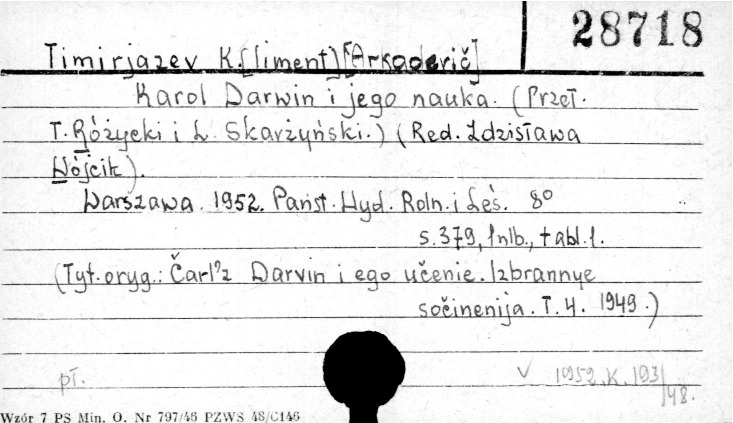 28718
Timirjazev K.[liment) [Arkaderič]
Karol Darwin i jego nauka. (Przeł.
T. Różycki i L. Skarżyński.) (Red. Zdzisława
Wójcik).
Warszawa. 1952. Państ. Wyd. Roln. i Leś. 8º
s. 379, 1 nlb., tabl. 1.
(Tyt. oryg.: Čarl'z Darvin i ego učenie. Izbrannye
sočinenija. T. 4. 1949.)
pł. v 1952.K.193/
/48.
Wzór 7 PS Min. O. Nr 797/46 PZWS 48/C146